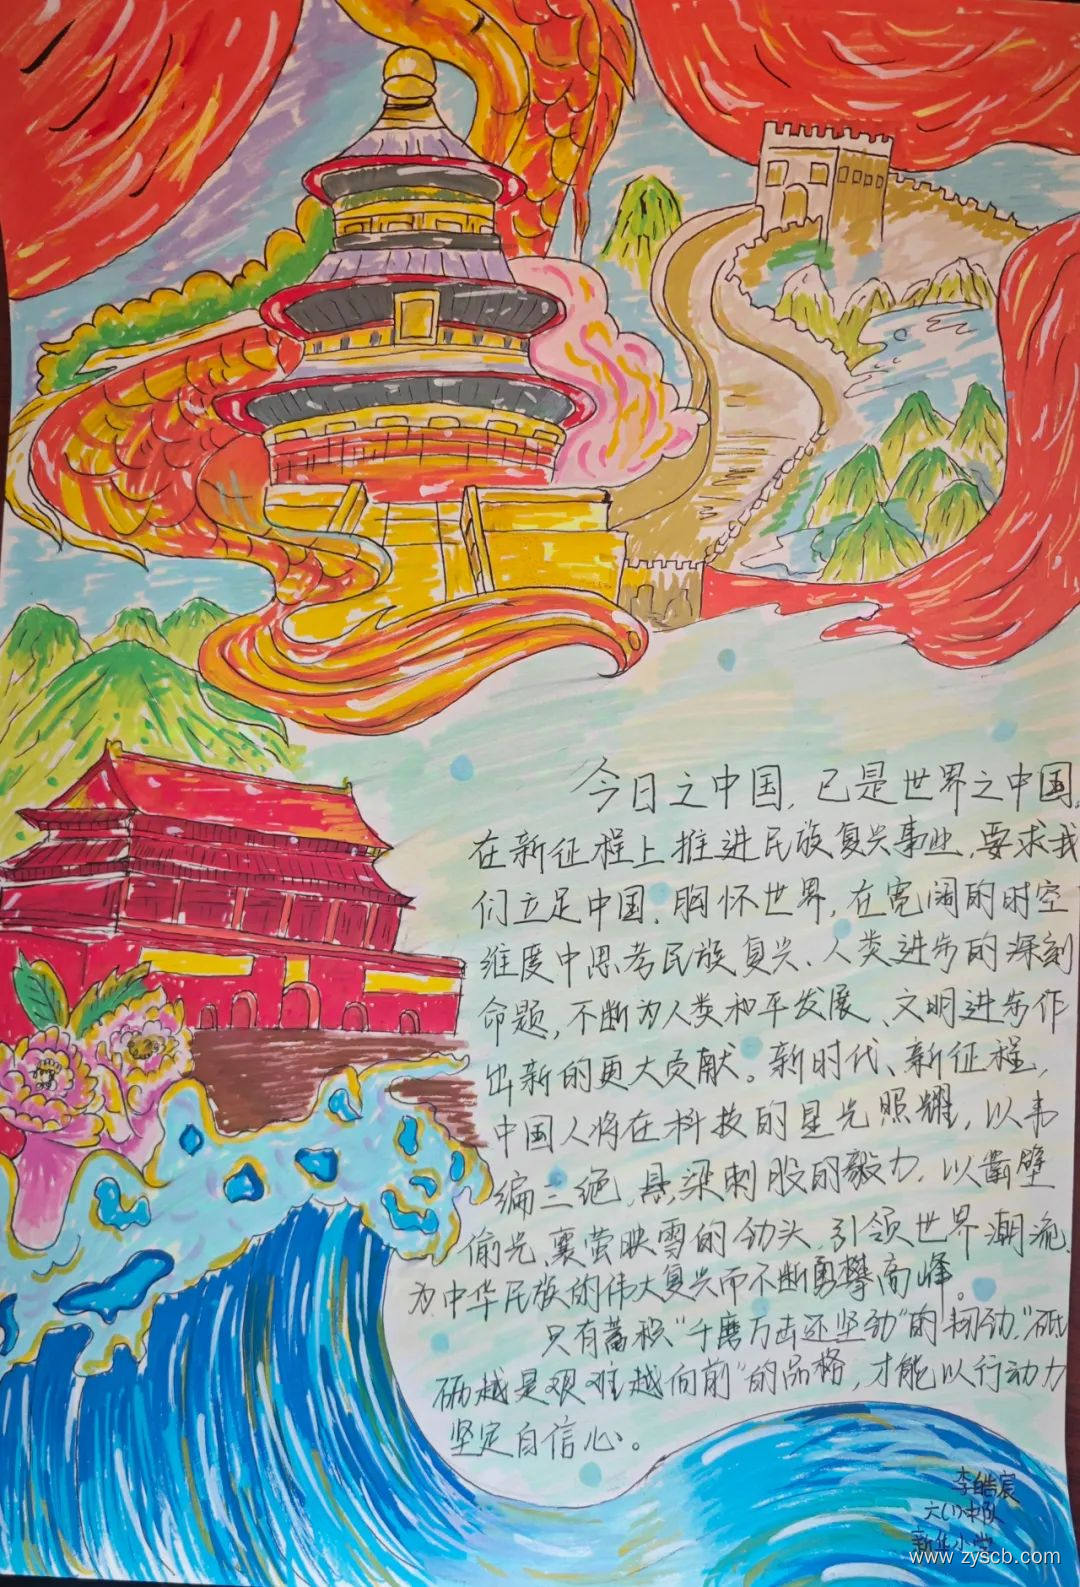 今日之中国，已是世界之中国，
在新征程上推进民族复兴事业，要求我
们立足中国、胸怀世界，在宽阔的时空
维度中思考民族复兴、人类进步的深刻
命题，不断为人类和平发展、文明进步作
出新的更大贡献。新时代、新征程，
中国人将在科技的星光照耀，以韦
编三绝，悬梁刺股的毅力，以凿壁
偷光、囊萤映雪的劲头，引领世界潮流、
为中华民族的伟大复兴而不断勇攀高峰。
只有蓄积“千磨万击还坚劲”的韧劲，“砥
砺越是艰难越向前”的品格，才能以行动力
坚定自信心。
李皓宸
六(1)中队
新华小学
www.zyscb.com